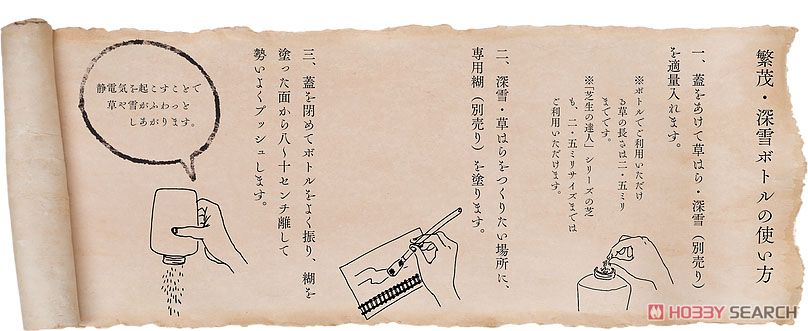 繁茂・深雪ボトルの使い方
一、蓋をあけて草はら・深雪（別売り）
を適量入れます。
※ボトルでご利用いただけ
る草の長さは二・五ミリ
までです。
※「芝生の達人」シリーズの芝
も、二・五ミリサイズまでは
ご利用いただけます。
二、深雪・草はらをつくりたい場所に、
専用糊（別売り）を塗ります。
三、蓋を閉めてボトルをよく振り、糊を
塗った面から八〜十センチ離して
勢いよくプッシュします。
静電気を起こすことで
草や雪がふわっと
しあがります。
HOBBY SEARCH